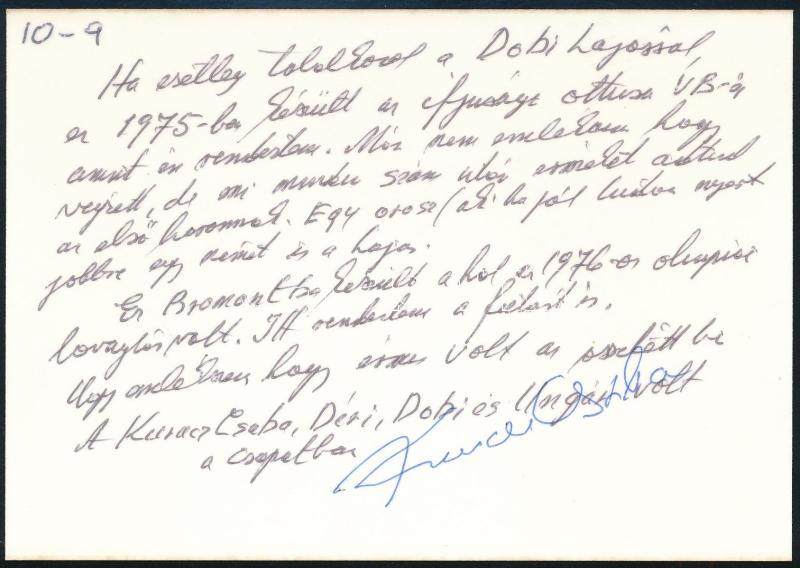 10-9
Ha esetleg találkozol a Dobi Lajossal,
ez 1975-ben készült az ifjusági öttusa VB-n
amit én rendeztem. Már nem emlékszem hogy
végzett, de mi munka szám után érmeket adtunk
az első háromnak. Egy orosz (aki ha jól tudom nyert
jobbra egy német és a Lajos.
Ez Bromontban készült ahol az 1976-os olimpiai
lovaglás volt. Itt rendeztem a futást is.
Ugy emlékszem hogy érmes volt az összetett be
A Kuracz Csaba, Déri, Dobi és Ungár volt
a csapatban